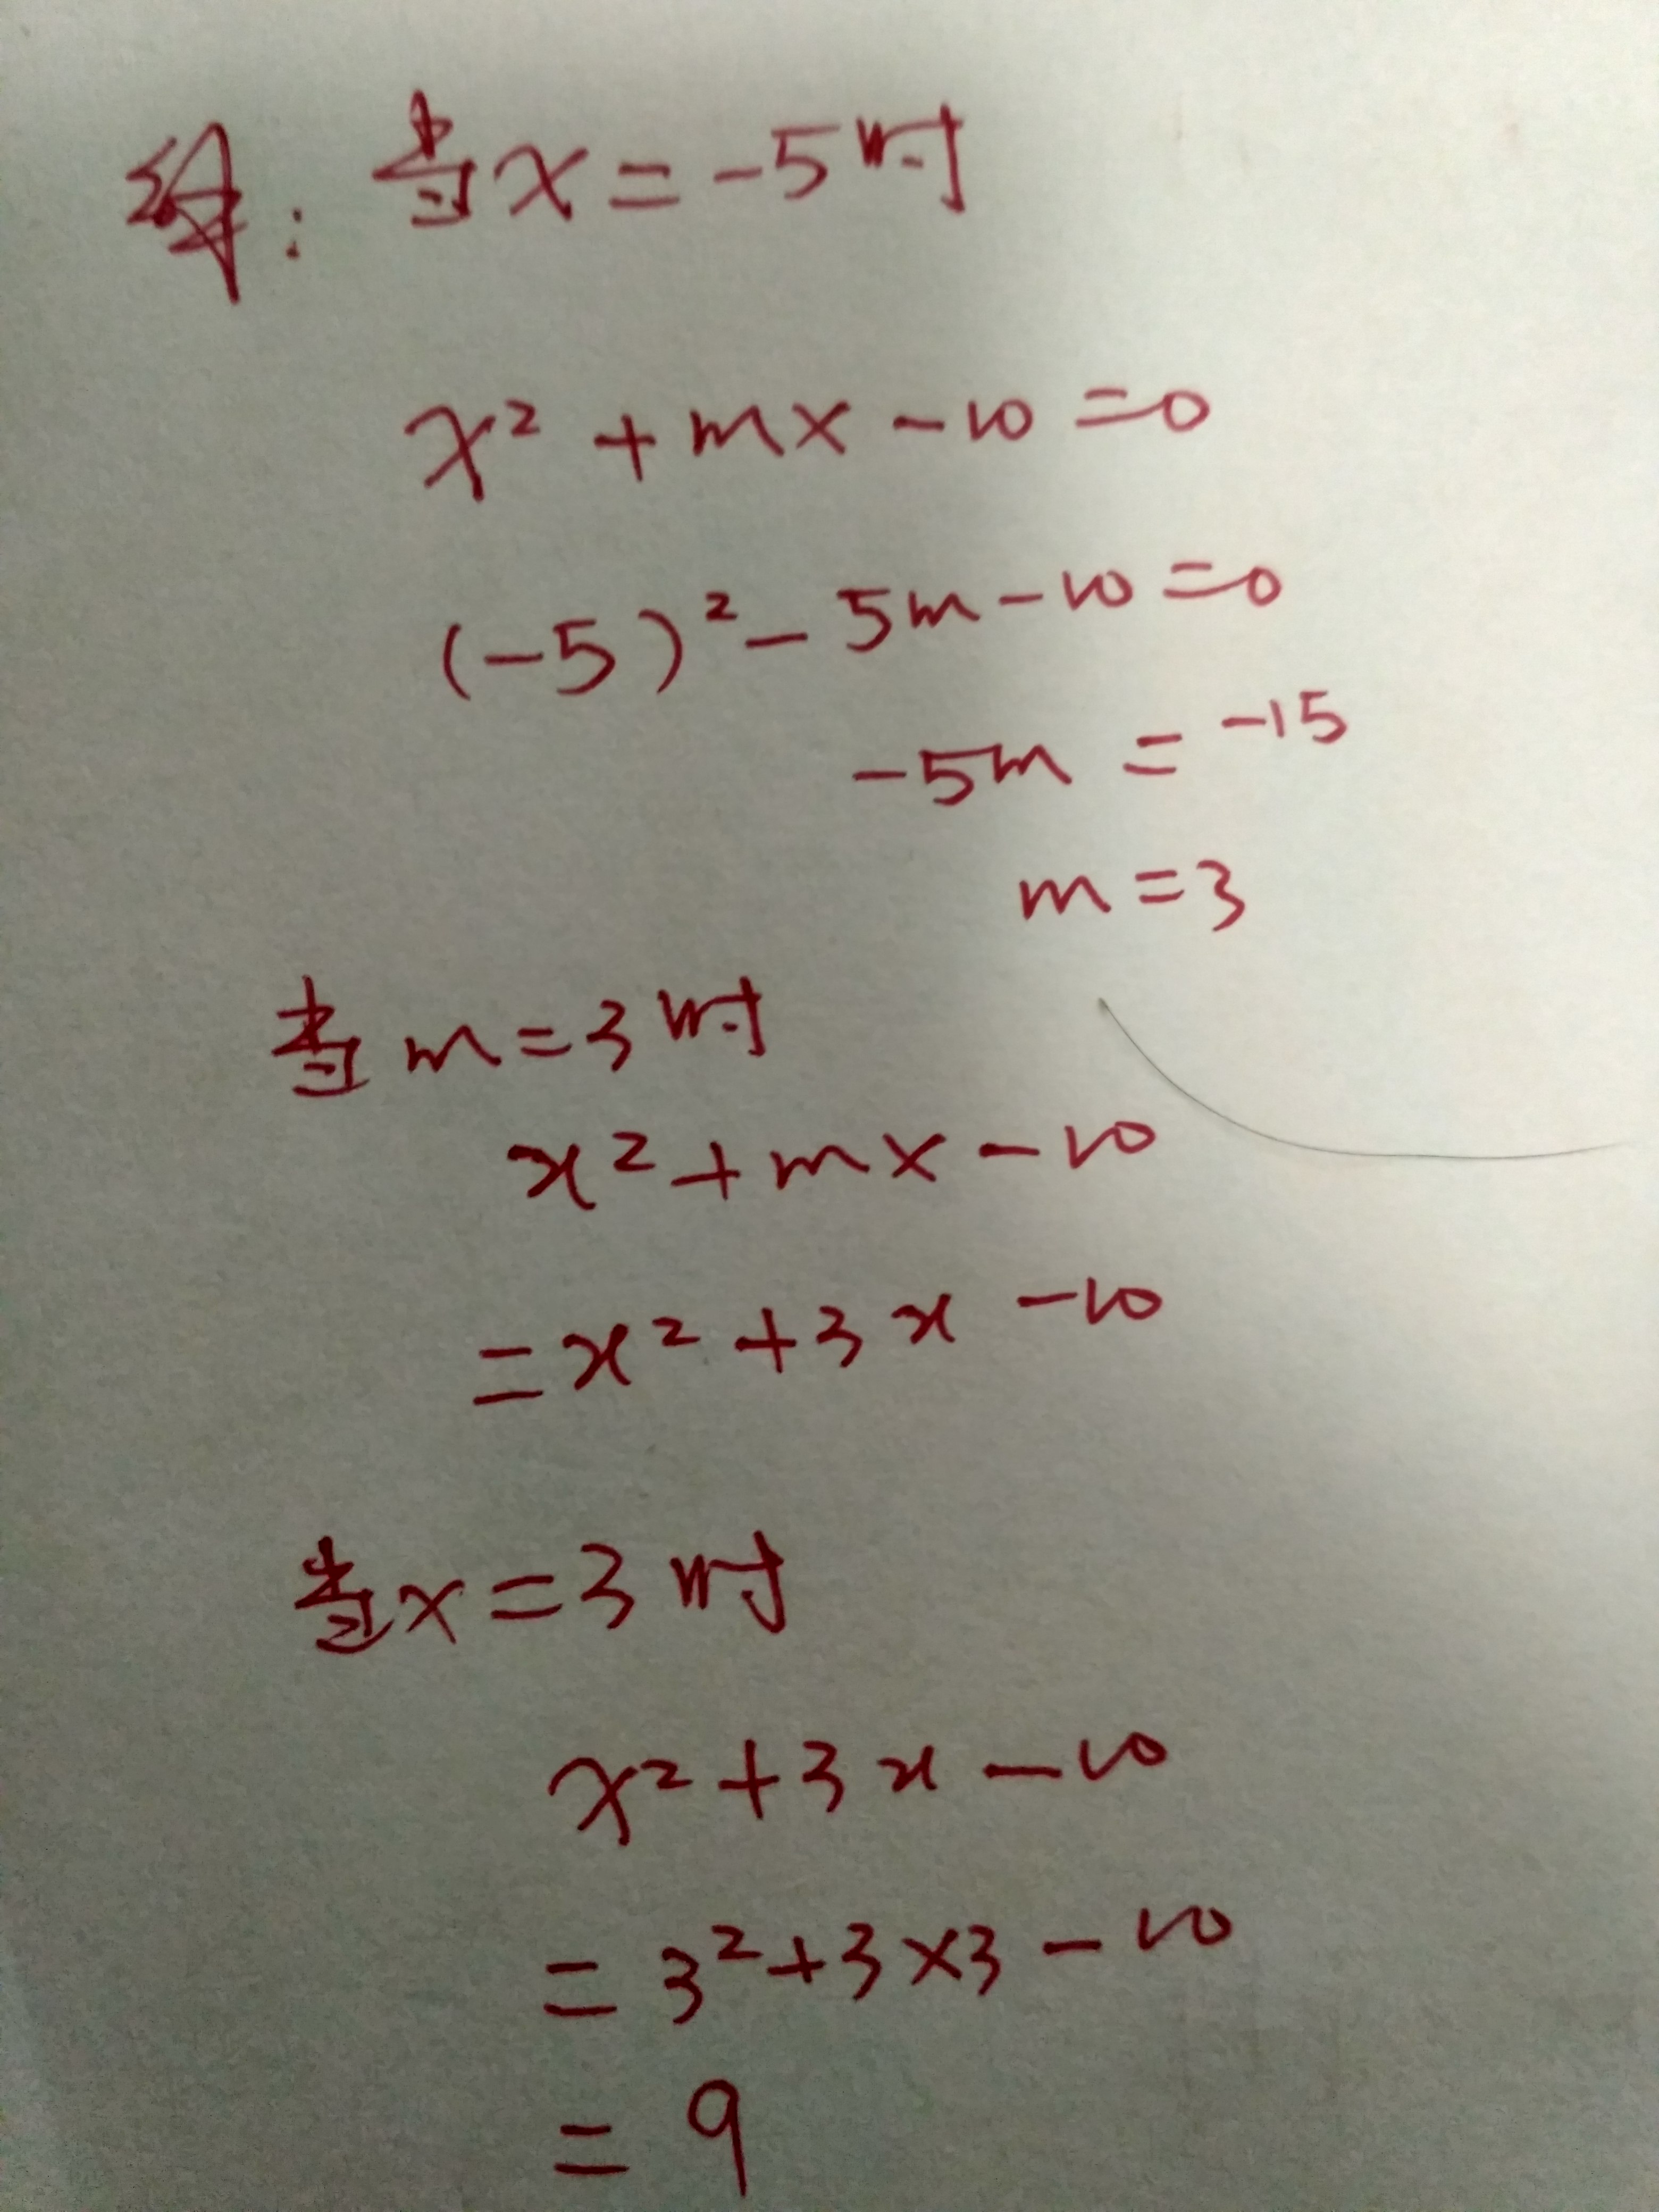 解：当x=-5时
x²+mx-10=0
(-5)²-5m-10=0
-5m=-15
m=3
当m=3时
x²+mx-10
=x²+3x-10
当x=3时
x²+3x-10
=3²+3×3-10
=9